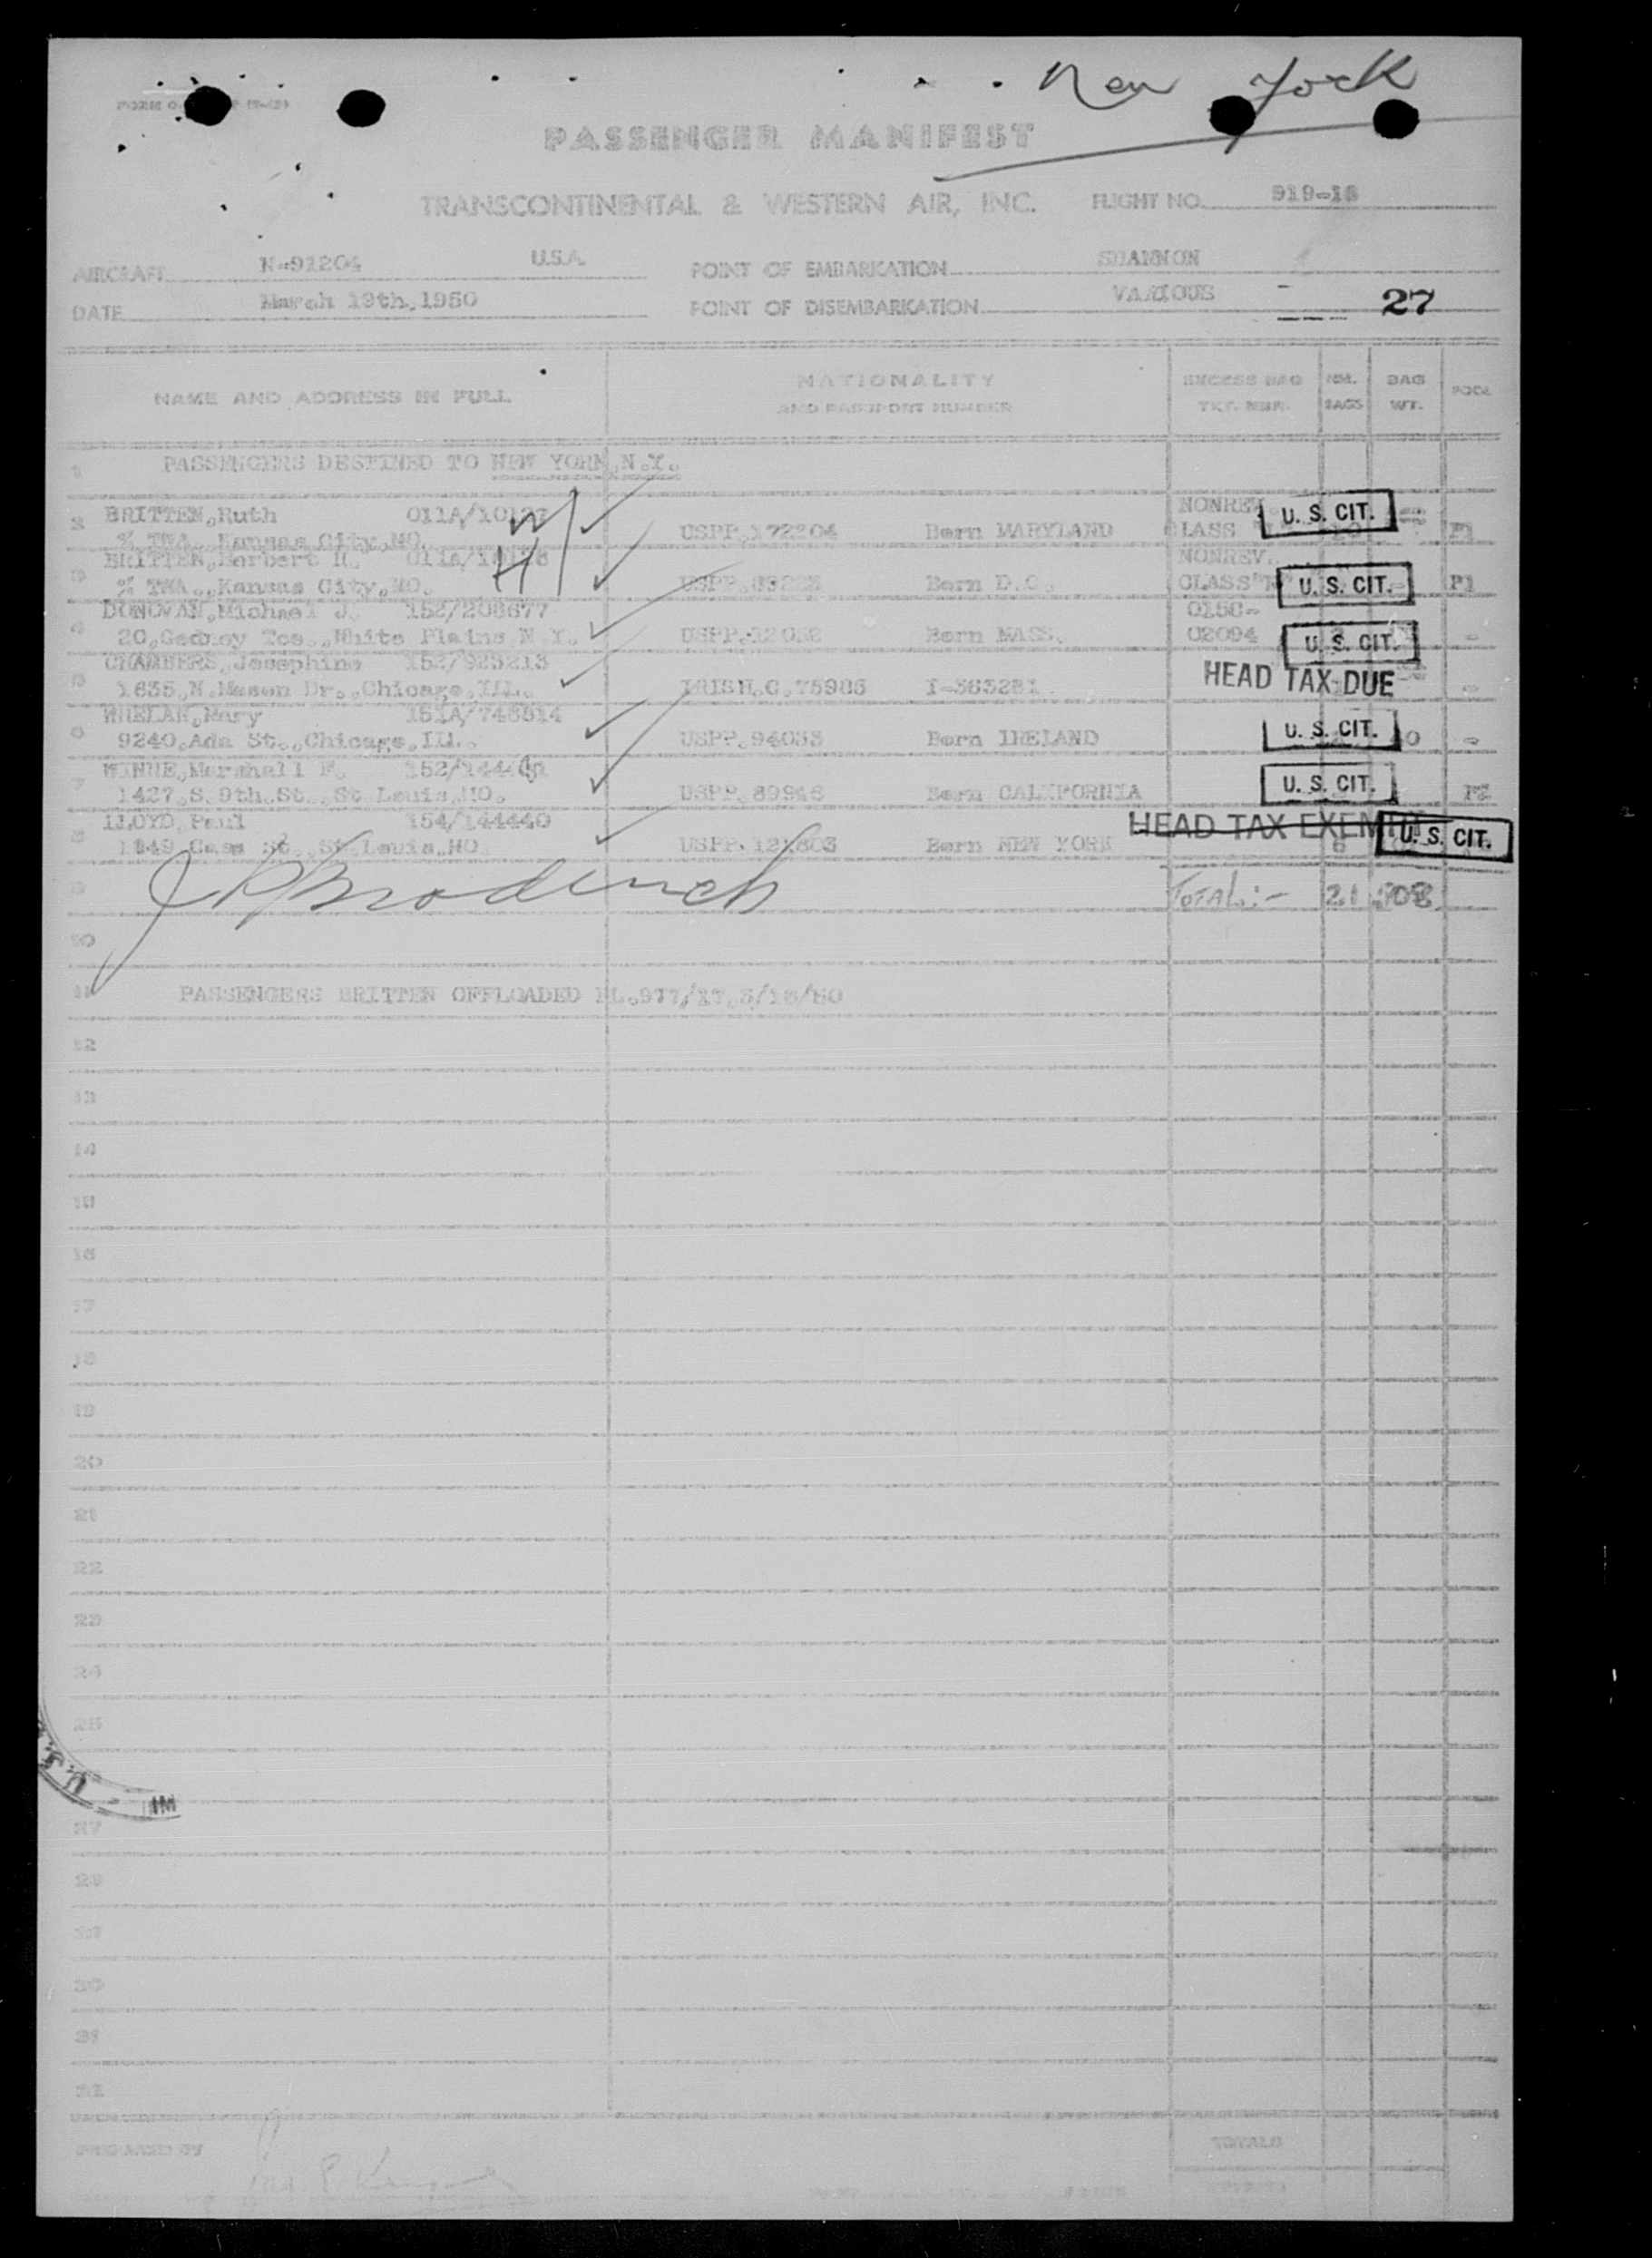 New York
PASSENGER MANIFEST
TRANSCONTINENTAL & WESTERN AIR, INC. FLIGHT NO. 919-18
AIRCRAFT N-91204 U.S.A. POINT OF EMBARKATION SHANNON
DATE March 19th,1950 POINT OF DISEMBARKATION VARIOUS - 27
NAME AND ADDRESS IN FULL NATIONALITY AND PASSPORT NUMBER EXCESS BAG TKT. NBR. NM. BAGS BAG WT. POOL
1 PASSENGERS DESTINED TO NEW YORK,N.Y.
2 BRITTEN,Ruth W NONREV. U. S. CIT.
% TWA.,Kansas City,MO. USPP.172204 Born MARYLAND CLASS P1
3 BRITTEN,Herbert H. H NONREV.
% TWA.,Kansas City,MO. Born D.C. CLASS U. S. CIT. P1
4 DONOVAN,Michael J. 152/208677 0158-
20,Gedney Tce.,White Plains,N.Y. Born MASS. 02094 U. S. CIT. -
5 CHAMBERS,Josephine 152/923213 HEAD TAX DUE
1635,N.Mason Dr.,Chicago,ILL. IRISH.C.75986 I-363281 -
6 WHELAN,Mary 151A/746514 U. S. CIT.
9240,Ada St.,Chicago,Ill. USPP.94033 Born IRELAND -
7 Marshall F. U. S. CIT.
1427,S.9th.St.,St Louis,MO. USPP.89946 Born CALIFORNIA P2
8 LLOYD,Paul 154/144440 HEAD TAX EXEMPT U. S. CIT.
1849 Cass St.,St.Louis,MO. Born NEW YORK
9 TOTAL:- 21
10
11 PASSENGERS BRITTEN OFFLOADED FL.977/17,3/18/50
12
13
14
15
16
17
18
19
20
21
22
23
24
25
U.S.
IM
27
28
29
30
31
32
PREPARED BY TOTALS